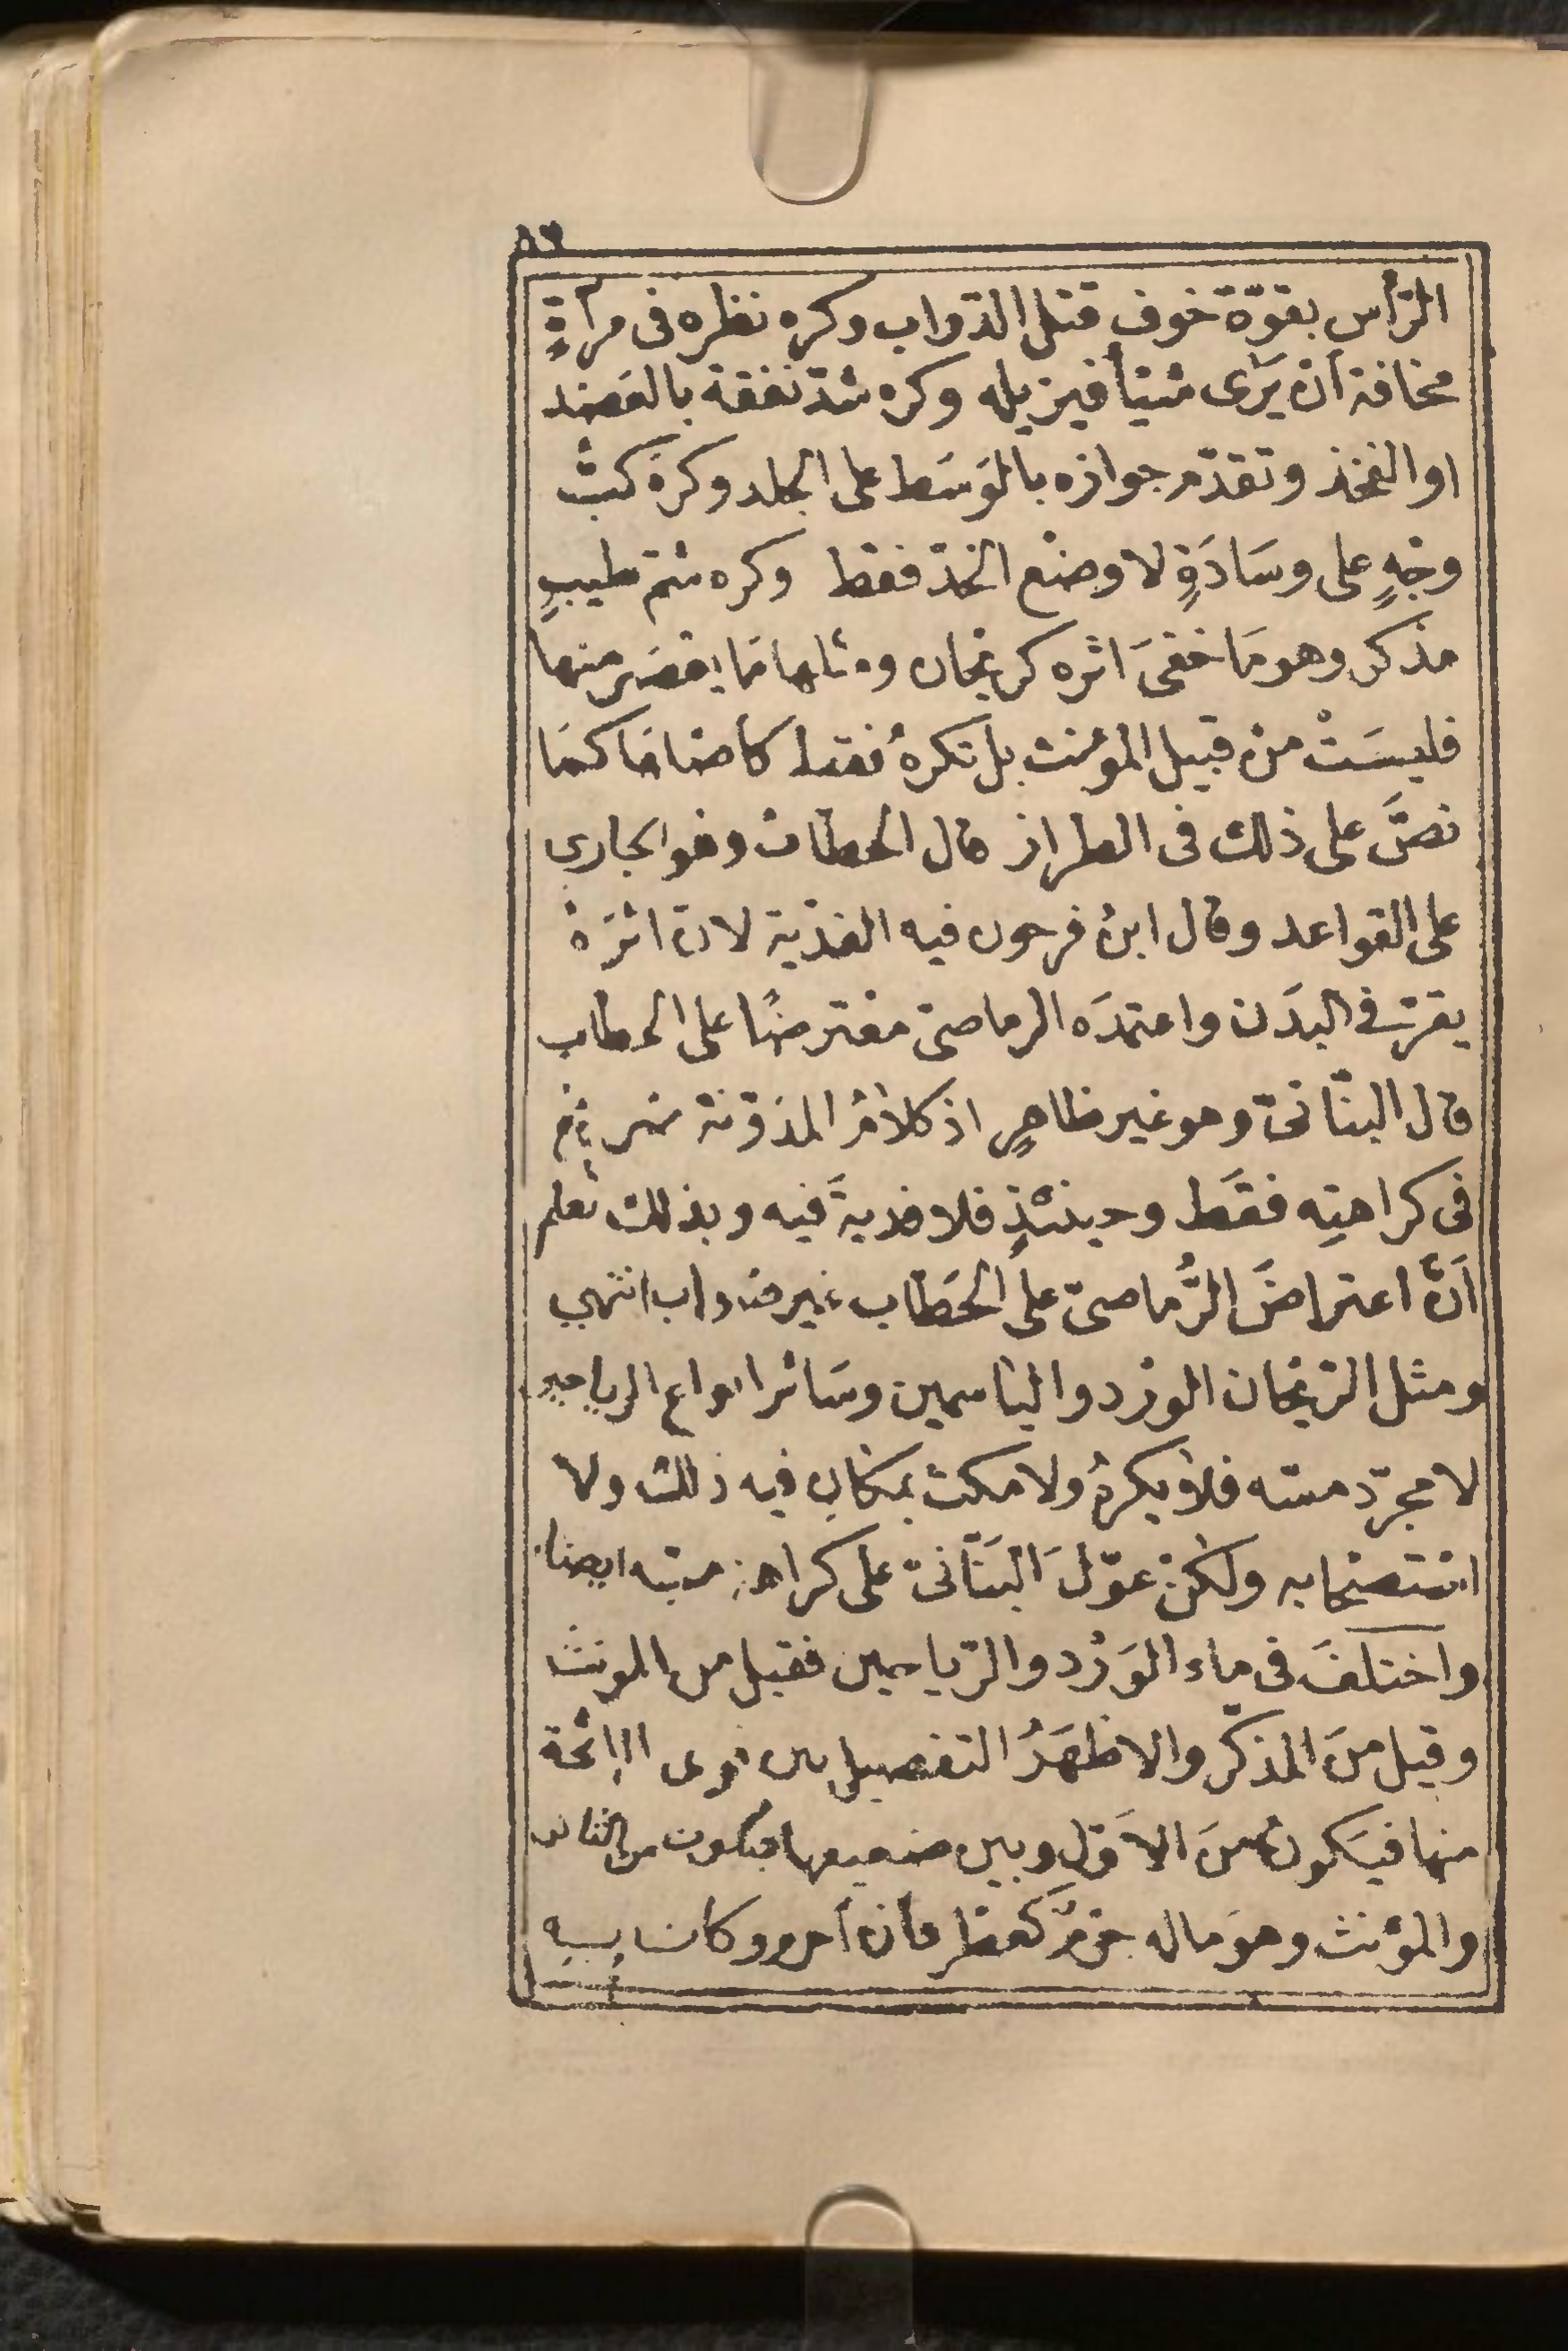 ٨٦
الرّأس بقوّة خوف قتل الدّواب وكره نظره فى مرآةٍ
مخافة أن يَرَى شيئاً فيزيله وكره شدّ نفقة بالعَضد
او الفخذ وتقدّم جوازه بالوَسَط على الجلد وكرهَ كبّ
وجْهٍ على وسَادَةٍ لا وضْع الخدّ فقط وكره شمّ طيبٍ
مذكر وهو مَا خفىَ اثره كريحان ومثلها مَا يعْصَر منها
فليسَتْ منْ قبيل المؤنث بل تكرهُ فقط كأصلها كمَا
نصَّ على ذلك فى الطراز قال الحطاب وهو الجارى
على القواعد وقال ابنُ فرحون فيه الفدْية لان اثرَهُ
يقرّ في البدَن واعتمدَه الرماصىّ معْترضًا على الحطاب
قال البنّانىّ وهو غير ظاهرٍ اذ كلامُ المدَوّنة صريحٌ
فى كراهتِه فقَط وحينئذٍ فلا فديةَ فيه وبذلك تعْلم
أنَّ اعتراضَ الرُّماصىّ على الحَطّاب غير صَواب انتهى
ومثل الرّيحان الورْد والياسمين وسَائر انواع الرياحين
لا مجرّد مسّه فلا يكرهُ ولا مكث بمكان فيه ذلك ولا
استصحَابه ولكنْ عوّلَ البَنَّانىّ على كراهة مسّه ايضا
واختلفَ فى ماء الوَرْد والرّياحين فقيل من المونث
وقيل منَ المذكّر والاظهَرُ التفصيل بين قوى الرائحة
منها فيَكون منَ الأوّل وبين ضعيفها فيكون من الثانى
والمؤنث وهوَ ماله جرْمٌ كعطر فأن أحرم وكان به